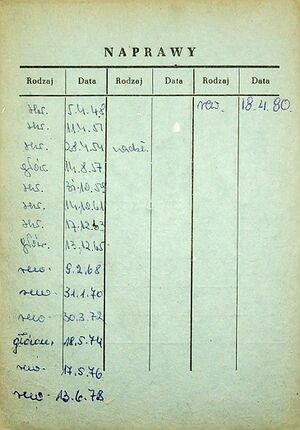 NAPRAWY
Rodzaj Data Rodzaj Data Rodzaj Data
śr. 5.4.48 rew. 18.4.80.
śr. 11.4.51
śr. 28.4.54
głów. 14.8.57
śr. 31.10.59
śr. 14.10.61
śr. 17.12.63
głów. 13.12.65
rew. 9.2.68
rew. 31.1.70
rew. 30.3.72
główn. 18.5.74
rew. 17.5.76
rew. 13.6.78